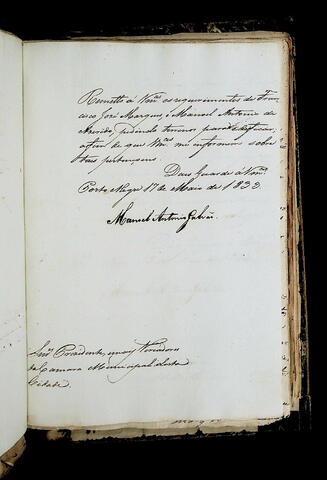 Remetto á Vm.ces os requerimentos de Fran-
cisco José Marques, e Manoel Antonio de
Azevedo, pedindo terrenos para edificar,
afim de que Vm.ces me informem sobre
suas pertençoens.
Deos Guarde á Vm.ces
Porto Alegre 17 de Maio de 1832
Manoel Antonio Galvão
Snr.s Prezidente, e mais Vereadores
da Camara Municipal desta
Cidade.